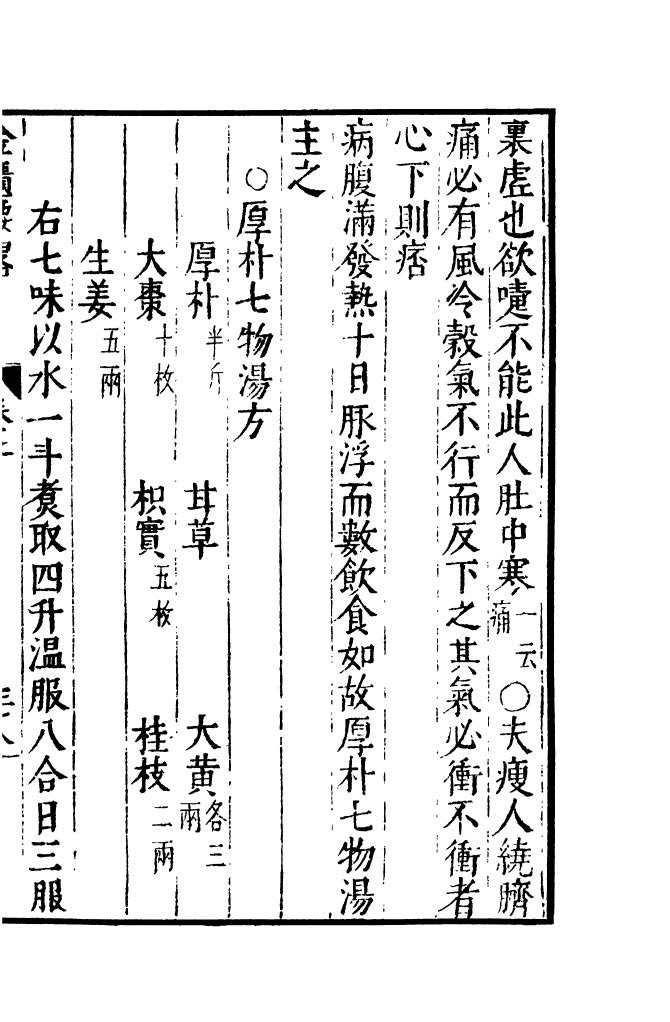 裏虗也欲嚏不能此人肚中寒一云痛〇夫瘦人繞臍
痛必有風冷穀氣不行而反下之其氣必衝不衝者
心下則痞
病腹滿發熱十日脉浮而數飲食如故厚朴七物湯
主之
〇厚朴七物湯方
厚朴半斤 甘草 大黄各三兩
大棗十枚 枳實五枚 桂枝二兩
生姜五兩
右七味以水一斗煑取四升温服八合日三服